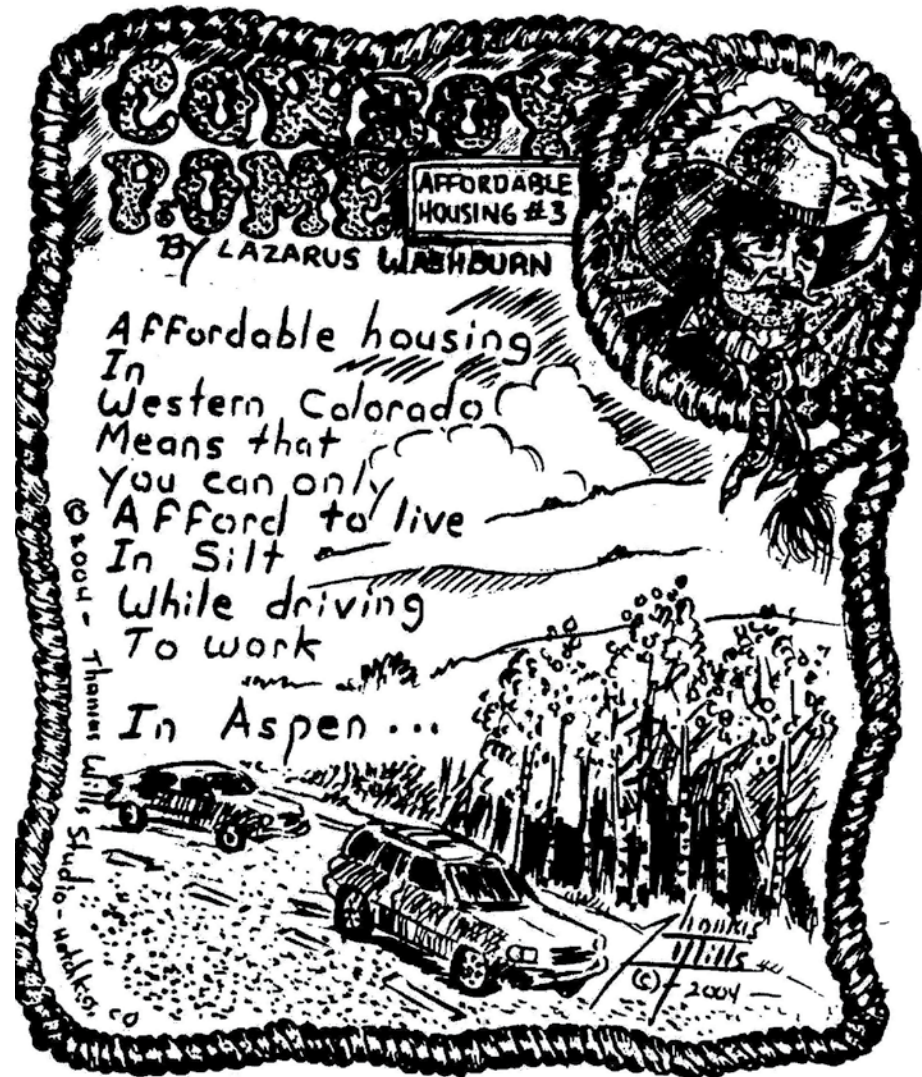 COWBOY
P.OME
AFFORDABLE
HOUSING #3
By LAZARUS WASHBURN
Affordable housing
In
Western Colorado
Means that
You can only
Afford to live
In Silt
While driving
To work
In Aspen...
©2004 - Thomas Wills Studio -
Wills
(c) - 2004 -